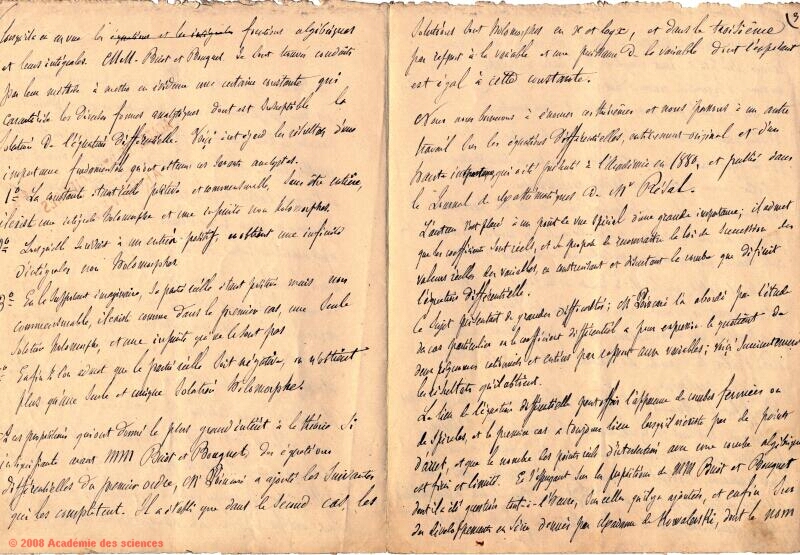 lorsqu'on en vue les équations et les intégrales fonctions algébriques
et leurs intégrales. MM. Briot et Bouquet. Se sont trouvés conduits
par leur méthode à mettre en évidence une certaine constante qui
caractérise les diverses formes analytiques dont est susceptible la
solution de l'équation différentielle. Voici les résultats d'une
importance fondamentale qu'ont obtenus ces savants analystes.
1º La constante étant réelle positive et commensurable, sans être entière,
il existe une intégrale holomorphe et une infinité non holomorphes.
2º Lorsqu'elle se réduit à un entier positif, on obtient une infinité
d'intégrales non holomorphes
3º En la supposant imaginaire, sa partie réelle étant positive mais non
commensurable, il existe comme dans le premier cas, une seule
solution holomorphe et une infinité qui ne le sont pas
Enfin si l'on admet que la partie réelle soit négative, on n'obtient
plus qu'une seule et unique solution holomorphe.
A ces propositions qui ont donné le plus grand intérêt à la théorie si
importante avant MM Briot et Bouquet, des équations
différentielles du premier ordre, Mr Poincaré a ajouté les suivantes
qui les complètent. Il a établi que dans le second cas, les
solutions sont holomorphes en x et log x, et dans le troisième
par rapport à la variable et une puissance de la variable dont l'exposant
est égal à cette constante.
Nous nous bornons à énoncer ces théorèmes et nous passons à un autre
travail sur les équations différentielles, entièrement original et d'une
haute importance qui a été présenté à l'Académie en 1880, et publié dans
le Journal de Mathématiques de Mr Résal.
L'auteur s'est placé à un point de vue spécial d'une grande importance; il admet
que les coefficients sont réels, et se propose de reconnaître la loi de succession des
valeurs réelles des variables, en construisant et discutant la courbe que définit
l'équation différentielle.
Le sujet présentant de grandes difficultés; Mr Poincaré l'a abordé par l'étude
du cas particulier où le coefficient différentiel a pour expression le quotient de
deux polynomes rationnels et entiers par rapport aux variables; voici succinctement
les résultats qu'il a obtenus.
Le lieu de l'équation différentielle peut offrir l'apparence de courbes fermées ou
de spirales, et le premier cas a toujours lieu lorsqu'il n'existe pas de points
d'arrêt, et que le nombre des points réels d'intersection avec une courbe algébrique
est fini et limité. En s'appuyant sur les propositions de MM Briot et Bouquet
dont il a été question tout-à-l'heure, sur celles qu'il y a ajoutées, et enfin sur
les développements en série donnés par Madame de Kowalevski, dont le nom
3
© 2008 Académie des sciences